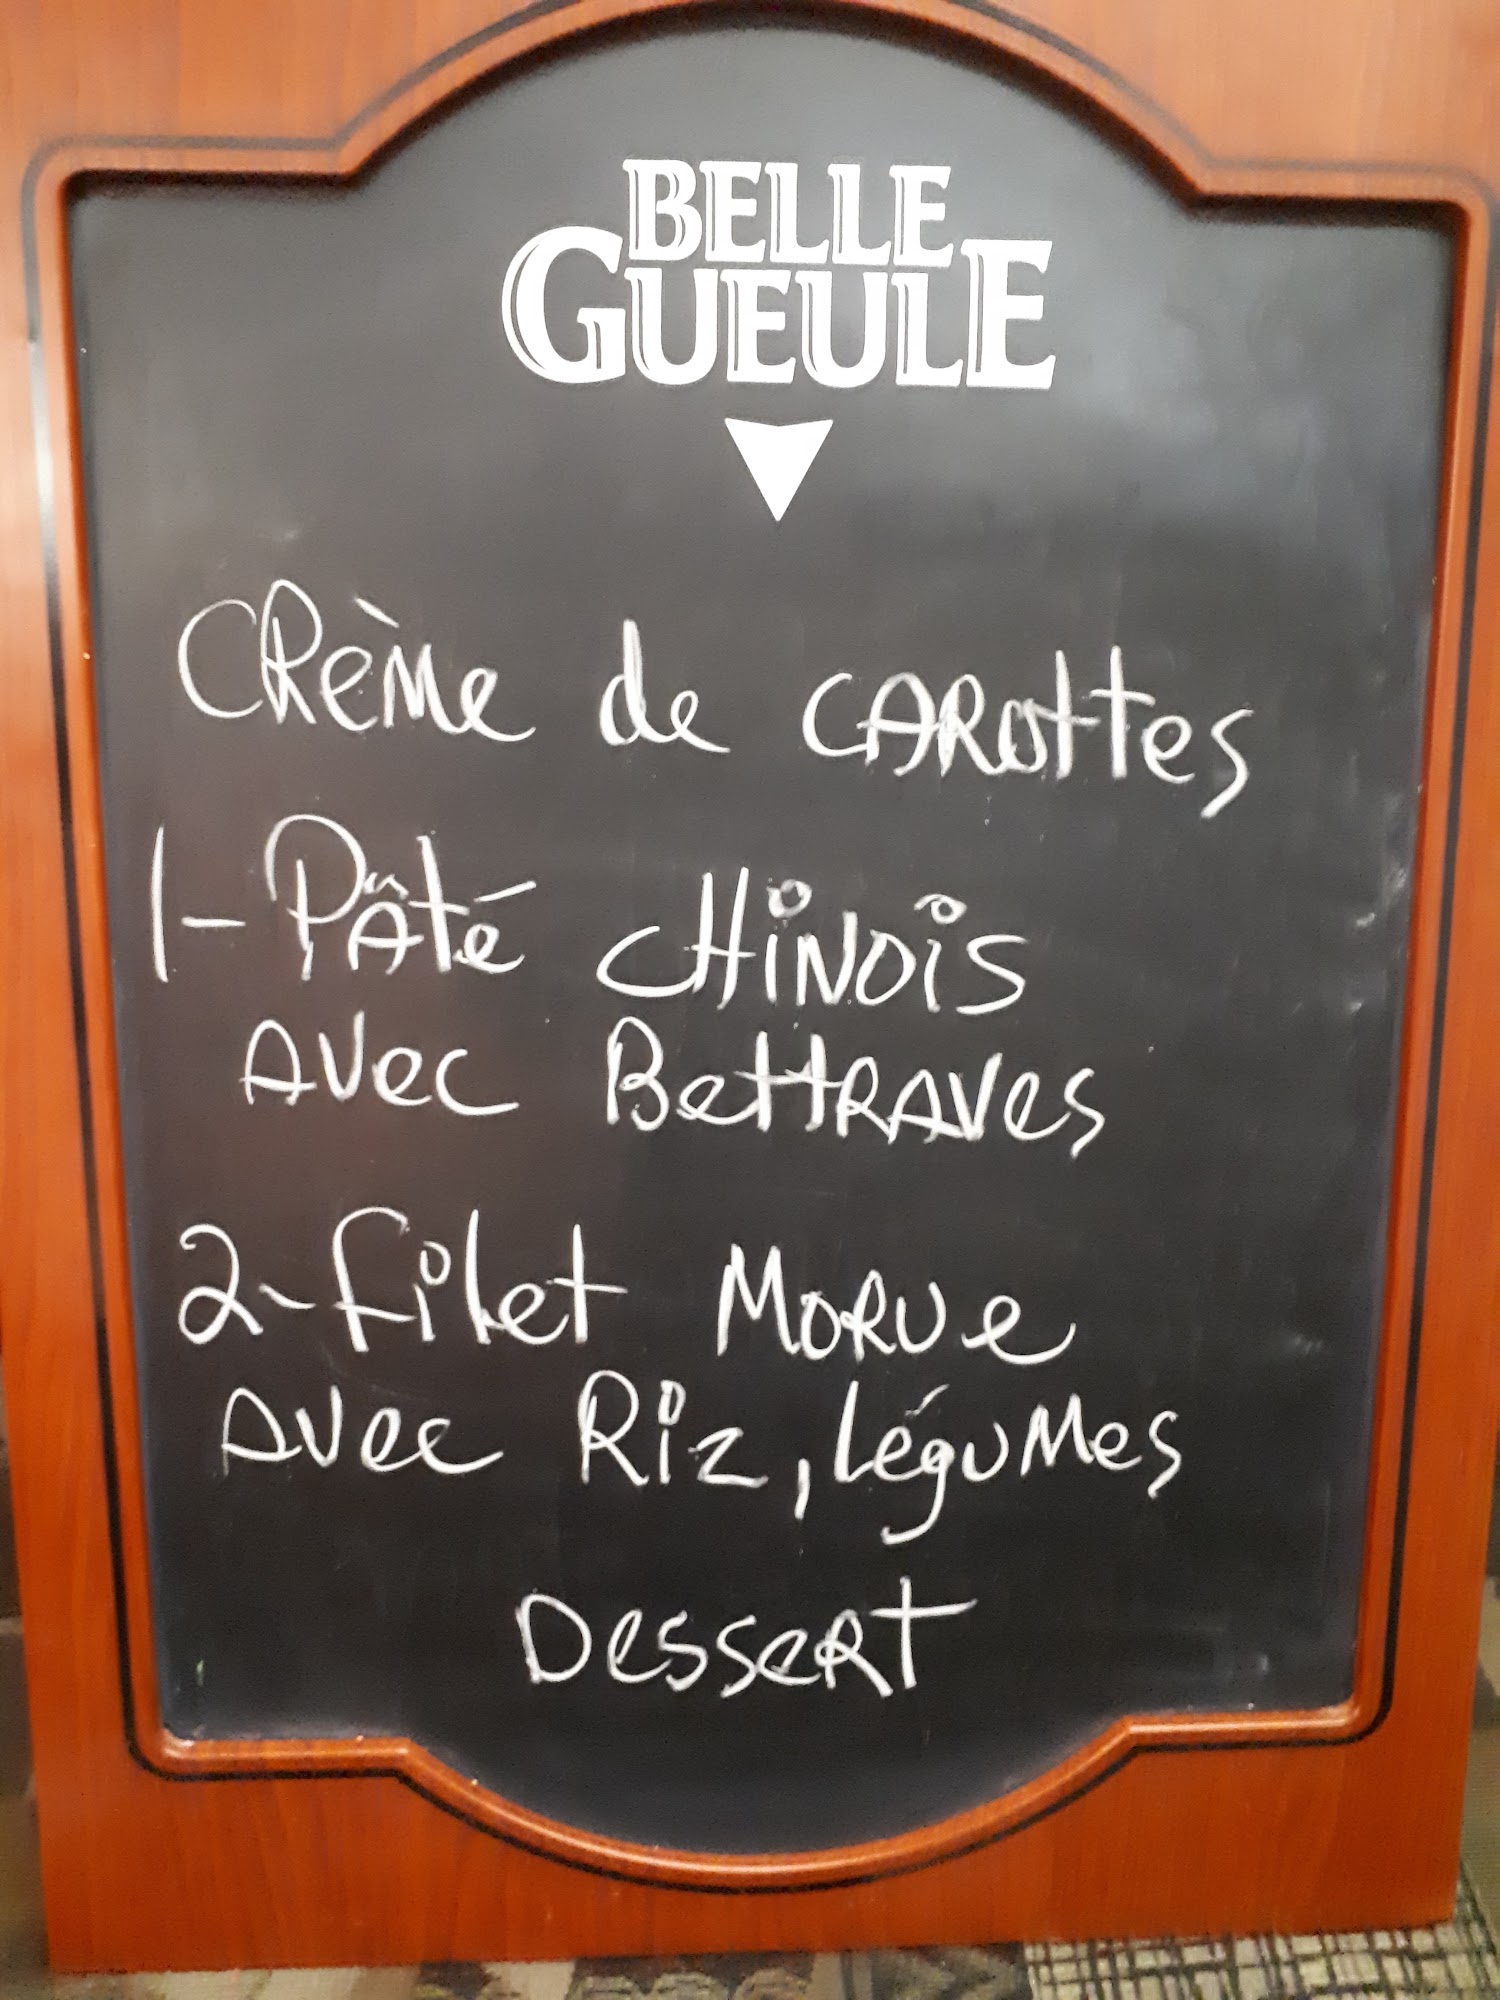 BELLE
GUEULE
Crème de CAROTTES
1- Pâté CHINOIS
AVec BeTTRAVes
2- Filet MORUe
AVec Riz, LégUMes
Dessert